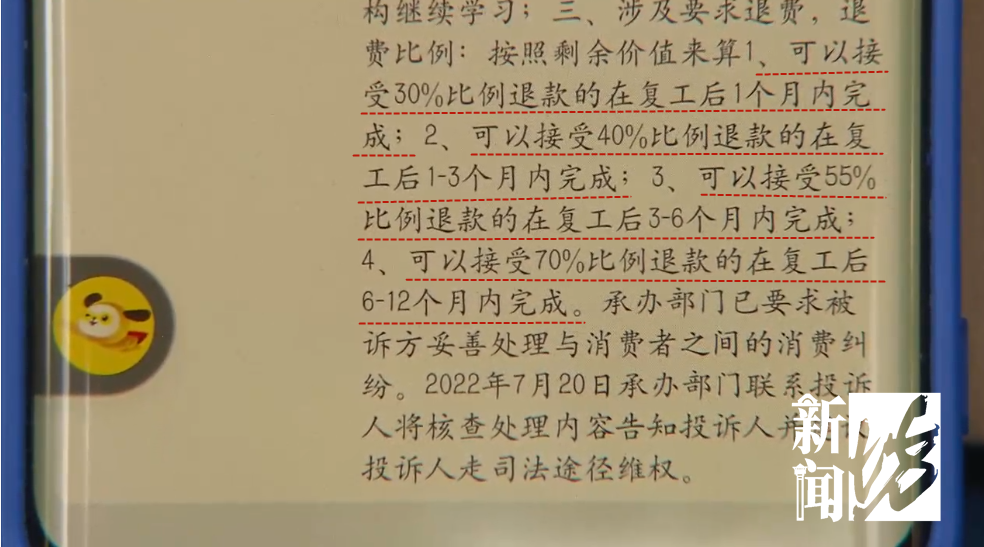 构继续学习；三、涉及要求退费，退
费比例：按照剩余价值来算1、可以接
受30%比例退款的在复工后1个月内完
成；2、可以接受40%比例退款的在复
工后1-3个月内完成；3、可以接受55%
比例退款的在复工后3-6个月内完成；
4、可以接受70%比例退款的在复工后
6-12个月内完成。承办部门已要求被
诉方妥善处理与消费者之间的消费纠
纷。2022年7月20日承办部门联系投诉
人将核查处理内容告知投诉人并
投诉人走司法途径维权。
新闻